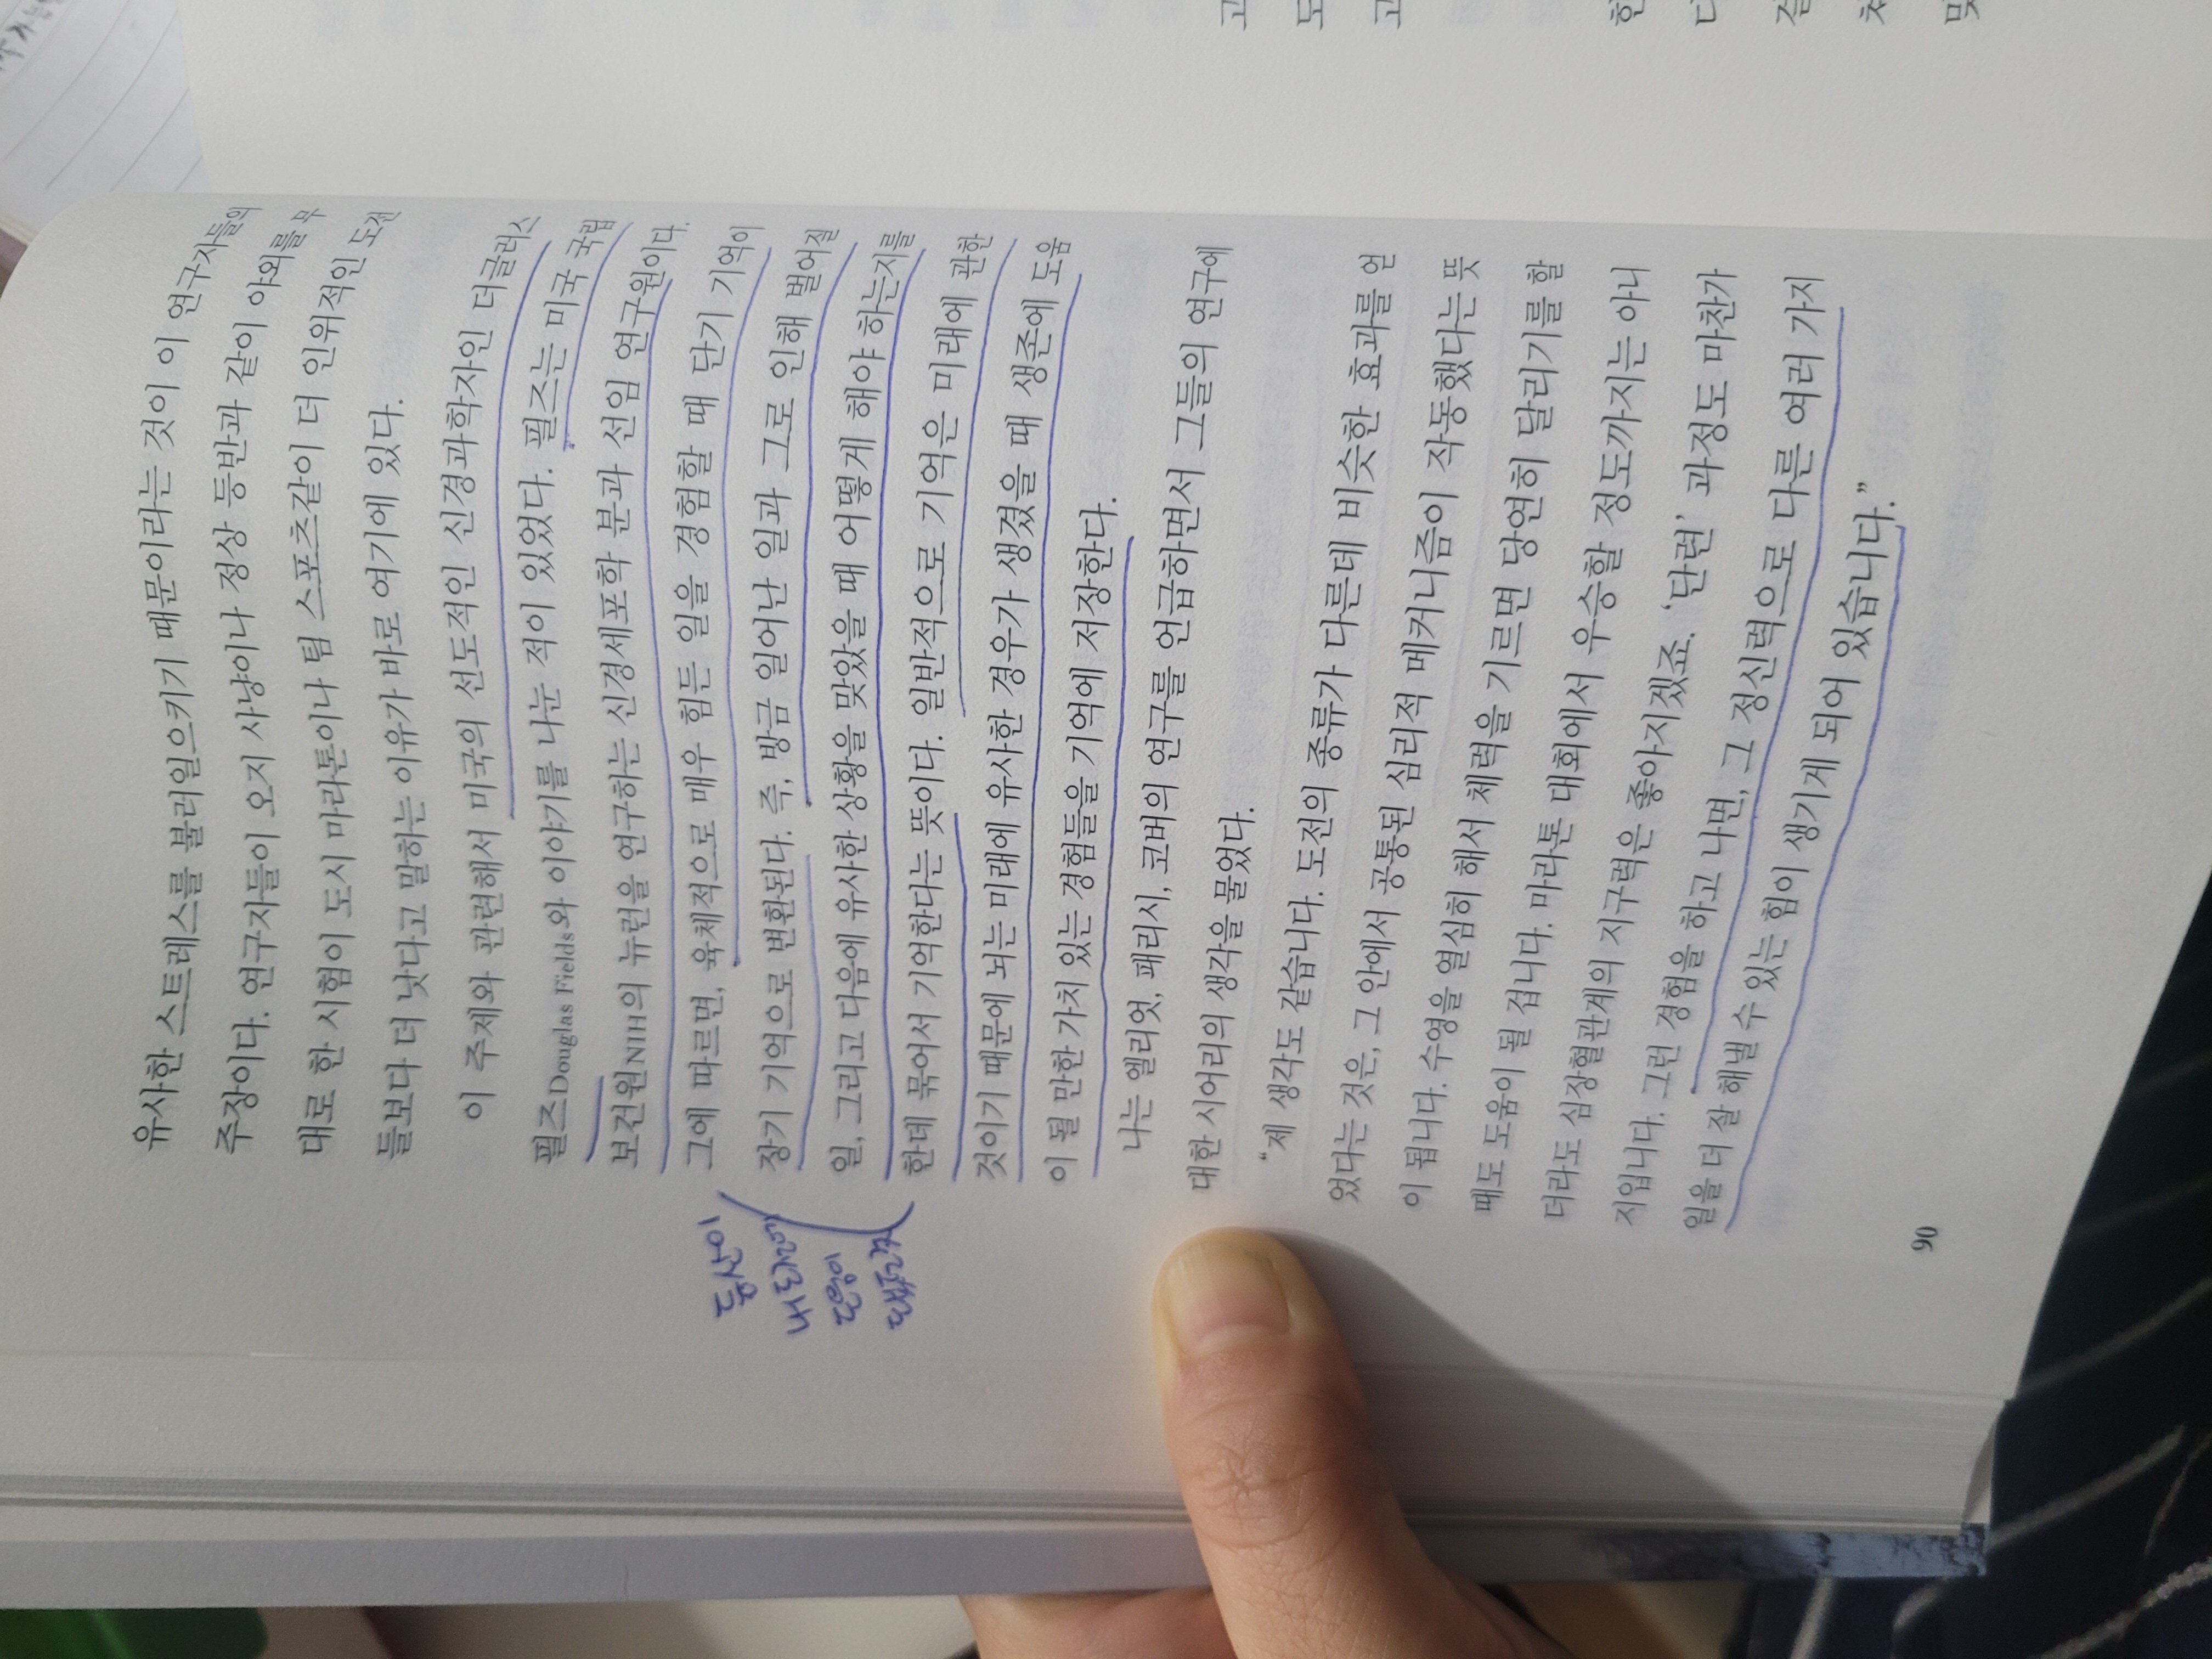 유사한 스트레스를 불러일으키기 때문이라는 것이 이 연구자들의
주장이다. 연구자들이 오지 사냥이나 정상 등반과 같이 야외를 무
대로 한 시험이 도시 마라톤이나 팀 스포츠같이 더 인위적인 도전
들보다 더 낫다고 말하는 이유가 바로 여기에 있다.
이 주제와 관련해서 미국의 선도적인 신경과학자인 더글러스
필즈Douglas Fields와 이야기를 나눈 적이 있었다. 필즈는 미국 국립
보건원NIH의 뉴런을 연구하는 신경세포학 분과 선임 연구원이다.
그에 따르면, 육체적으로 매우 힘든 일을 경험할 때 단기 기억이
장기 기억으로 변환된다. 즉, 방금 일어난 일과 그로 인해 벌어질
일, 그리고 다음에 유사한 상황을 맞았을 때 어떻게 해야 하는지를
한데 묶어서 기억한다는 뜻이다. 일반적으로 기억은 미래에 관한
것이기 때문에 뇌는 미래에 유사한 경우가 생겼을 때 생존에 도움
이 될 만한 가치 있는 경험들을 기억에 저장한다.
나는 엘리엇, 패리시, 코버의 연구를 언급하면서 그들의 연구에
대한 시어리의 생각을 물었다.
“제 생각도 같습니다. 도전의 종류가 다른데 비슷한 효과를 얻
었다는 것은, 그 안에서 공통된 심리적 메커니즘이 작동했다는 뜻
이 됩니다. 수영을 열심히 해서 체력을 기르면 당연히 달리기를 할
때도 도움이 될 겁니다. 마라톤 대회에서 우승할 정도까지는 아니
더라도 심장혈관계의 지구력은 좋아지겠죠. ‘단련’ 과정도 마찬가
지입니다. 그런 경험을 하고 나면, 그 정신력으로 다른 여러 가지
일을 더 잘 해낼 수 있는 힘이 생기게 되어 있습니다.”
90
등산이
내